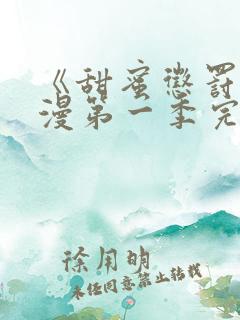 《甜蜜惩罚
漫第一季完
徐用明
未经同意禁止转载